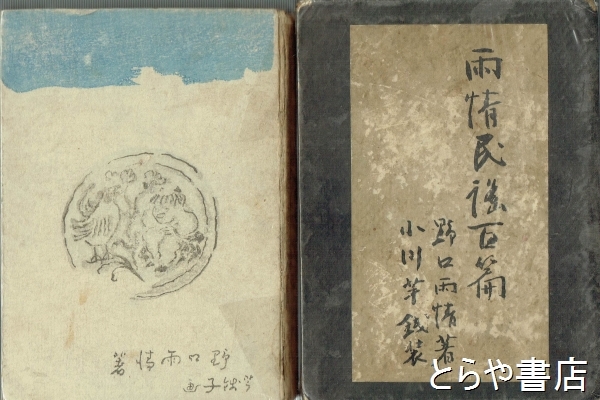 雨情民謡百篇
野口雨情著
小川芋銭装
野口雨情著
芋銭子画
とらや書店